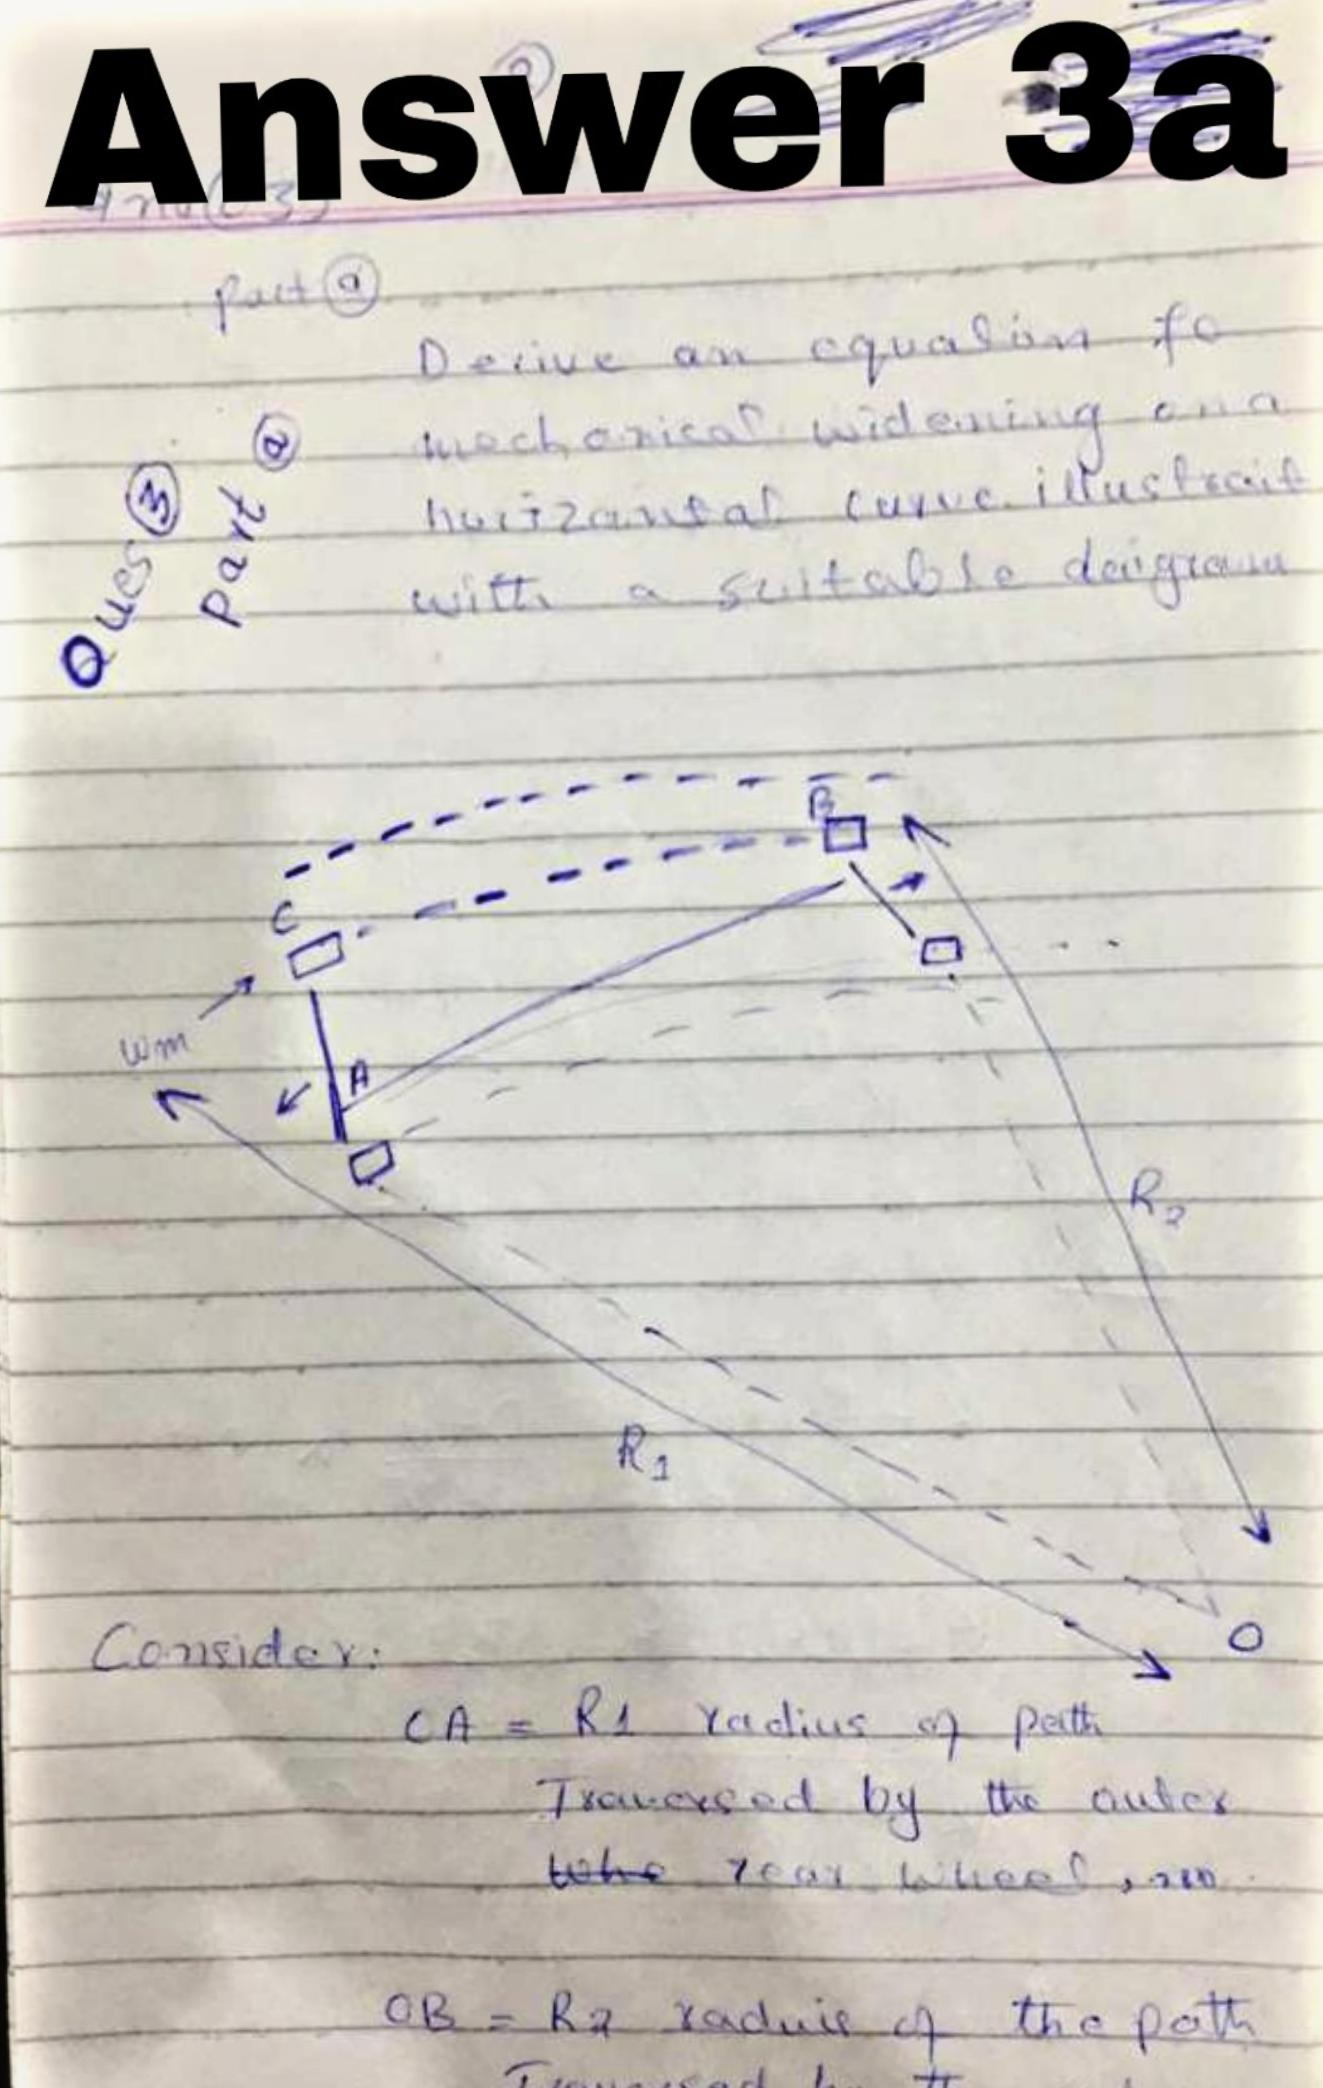 Answer 3a
part a
Ques 3
part a
Derive an equation fo
mechanical widening on a
horizontal curve illustrait
with a suitable daigram
B
C
Wm
A
R2
R1
O
Consider:
CA = R1 radius of path
Traversed by the outer
rear wheel,
OB = R2 raduis of the path
Traversed by the